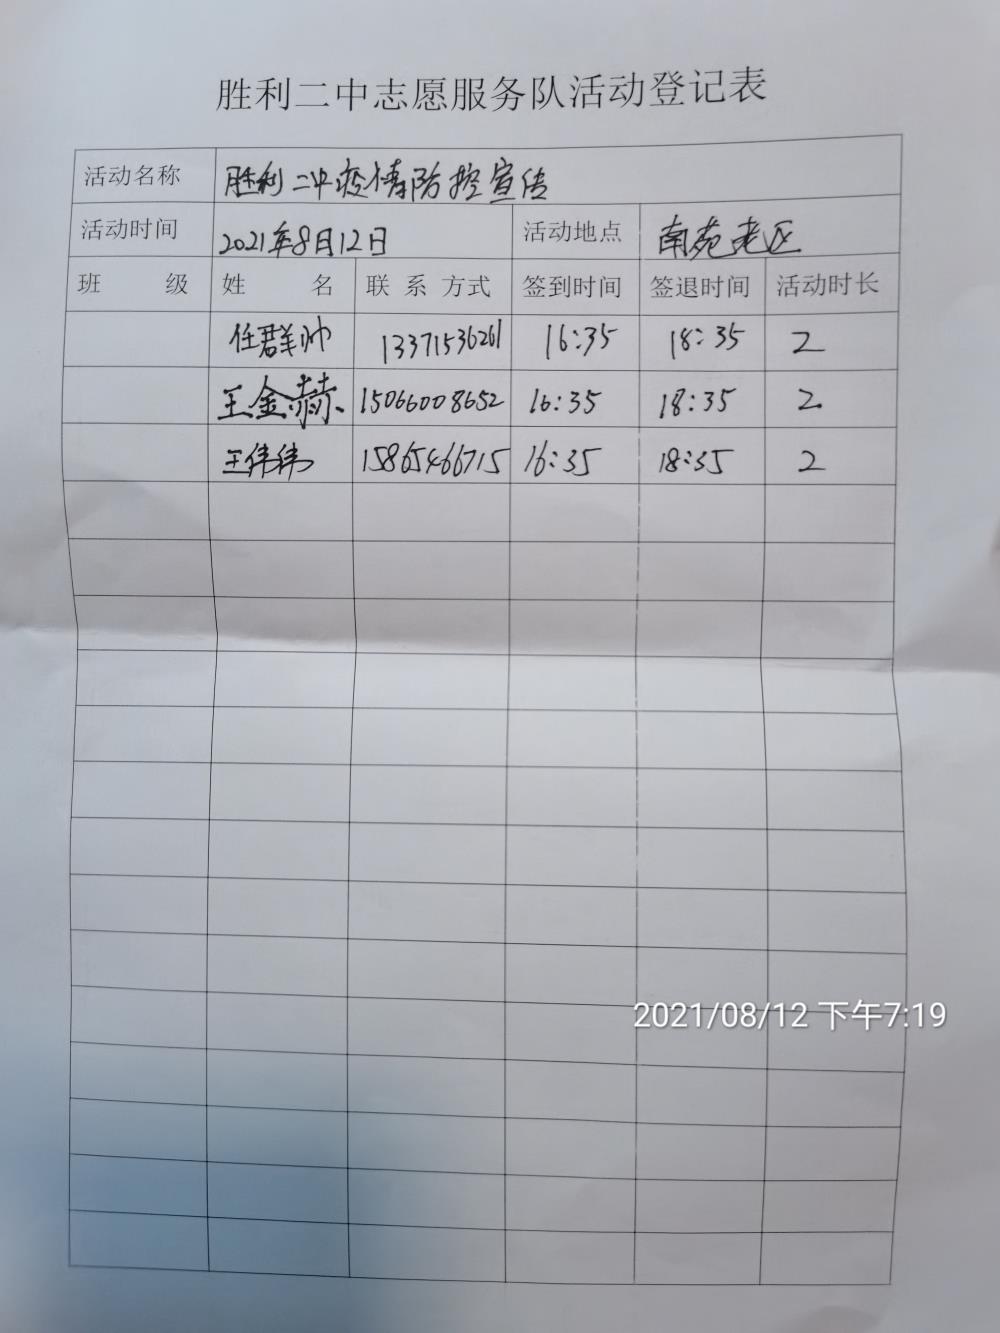 胜利二中志愿服务队活动登记表
活动名称 胜利二中疫情防控宣传
活动时间 2021年8月12日 活动地点 南苑老区
班 级 姓 名 联 系 方式 签到时间 签退时间 活动时长
任群帅 13371536261 16:35 18:35 2
王金赫 15066008652 16:35 18:35 2
王伟伟 15865466715 16:35 18:35 2
2021/08/12 下午7:19